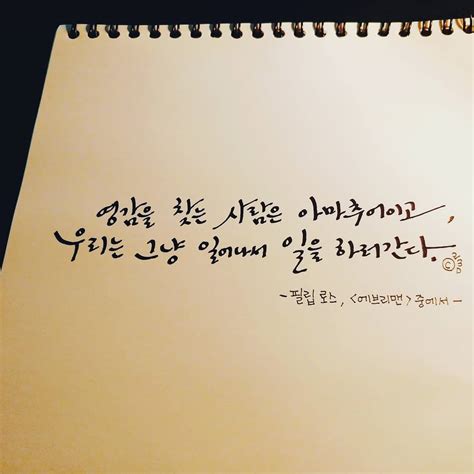 영감을 찾는 사람은 아마추어이고,
우리는 그냥 일어나서 일을 하러간다.
- 필립 로스, <에브리맨> 중에서 -